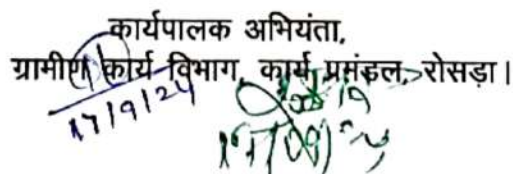 कार्यपालक अभियंता,
ग्रामीण कार्य विभाग, कार्य प्रमंडल, रोसड़ा।
17/9/24